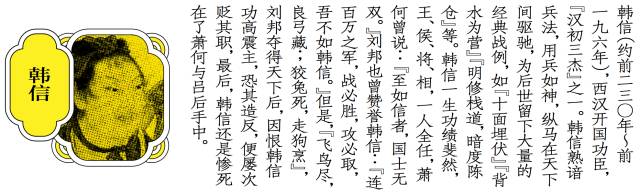 韩信（约前二三〇年～前
一九六年），西汉开国功臣，
『汉初三杰』之一。韩信熟谙
兵法，用兵如神，纵马在天下
间驱驰，为后世留下大量的
经典战例，如『十面埋伏』『背
水为营』『明修栈道，暗度陈
仓』等。韩信一生功绩斐然，
王、侯、将、相，一人全任，萧
何曾说：『至如信者，国士无
双。』刘邦也曾赞誉韩信：『连
百万之军，战必胜，攻必取，
吾不如韩信。』但是，『飞鸟尽，
良弓藏；狡兔死，走狗烹』，
刘邦夺得天下后，因恨韩信
功高震主，恐其造反，便屡次
贬其职，最后，韩信还是惨死
在了萧何与吕后手中。
韩信